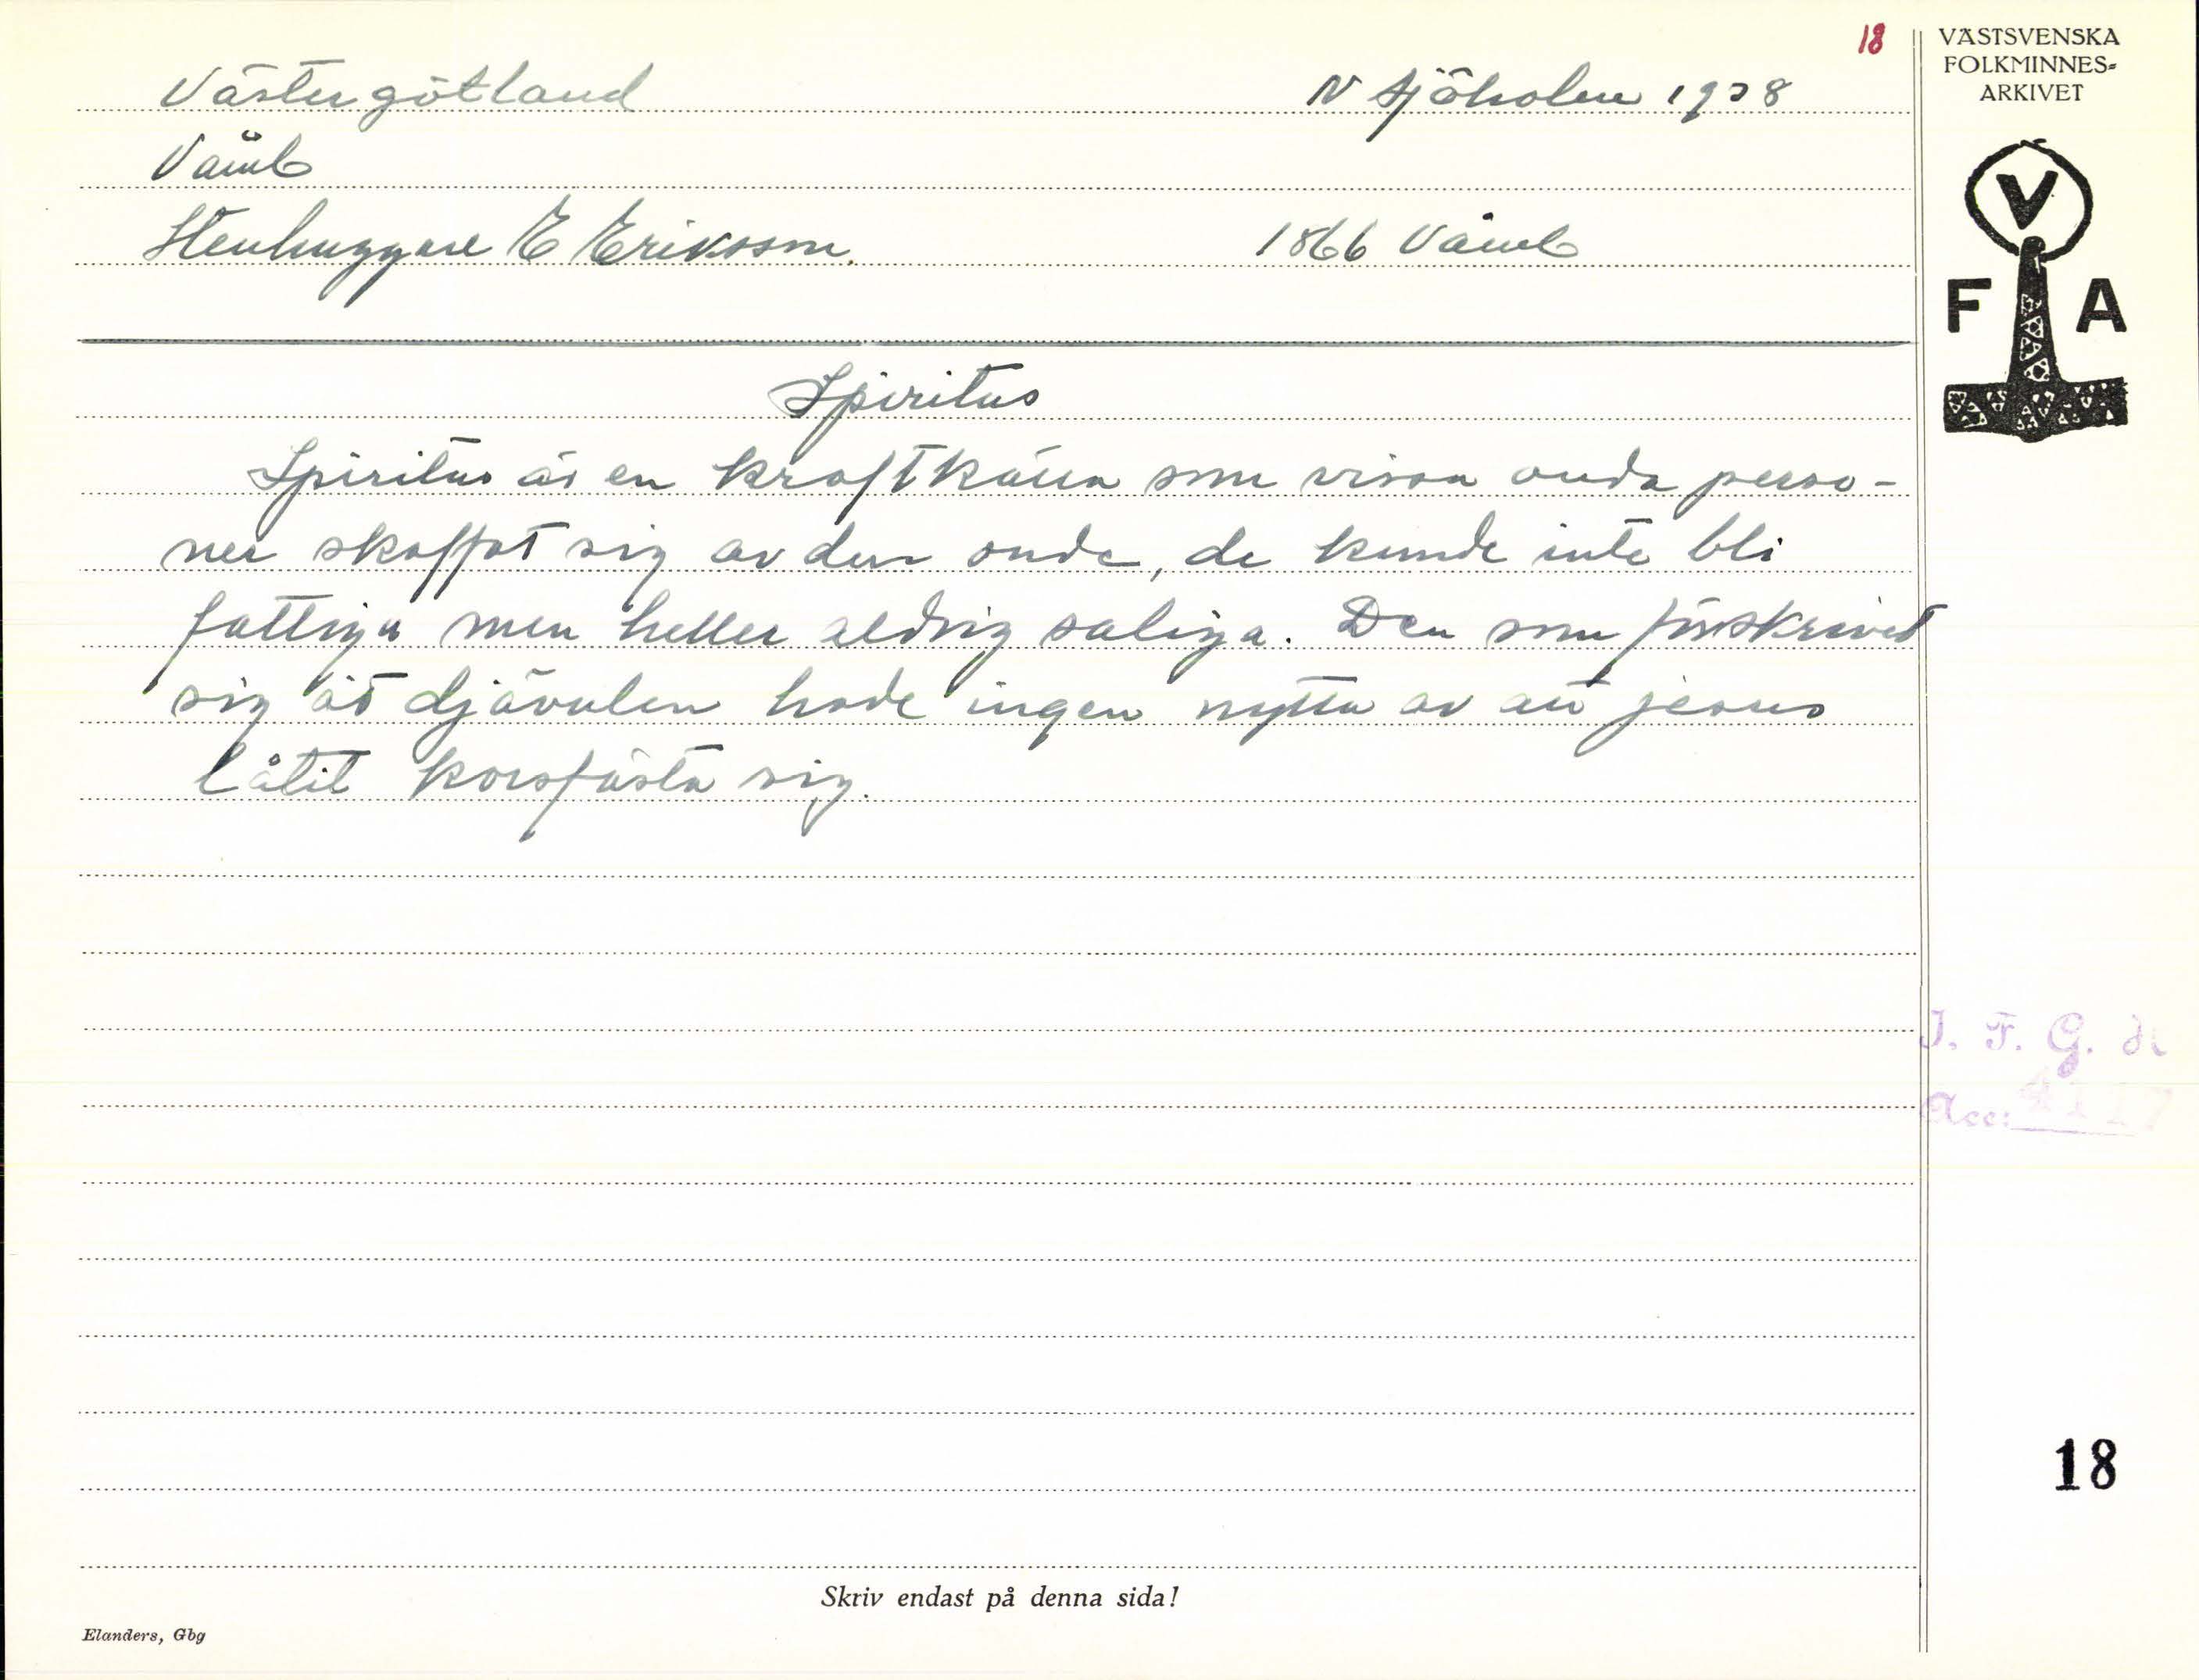 18
Västergötland N Sjöholm 1928
Vämb
Stenhuggare E Eriksson. 1866 Vämb
Spiritus
Spiritus är en kraftkälla som vissa onda perso-
ner skaffat sig av den onde, de kunde inte bli
fattiga men heller aldrig saliga. Den som förskrivit
sig åt djävulen hade ingen nytta av att jesus
låtit korsfästa sig.
VÄSTSVENSKA
FOLKMINNES-
ARKIVET
V
F A
I. F. G. H.
Acc:
18
Skriv endast på denna sida!
Elanders, Gbg